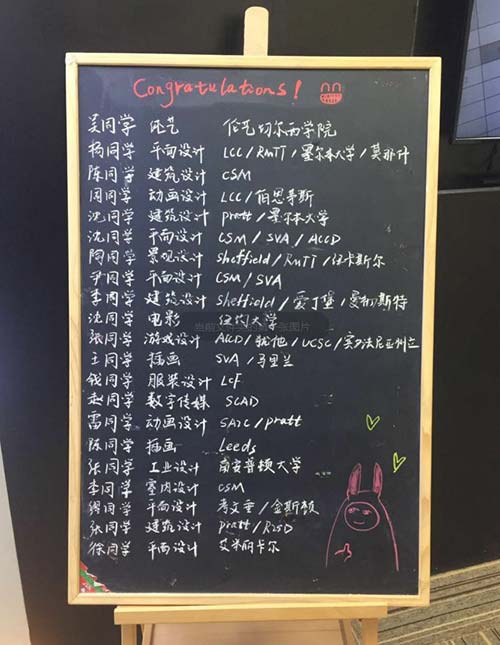 Congratulations!
吴同学 纯艺 伦艺切尔西学院
杨同学 平面设计 LCC/RMIT/墨尔本大学/莫那什
陈同学 建筑设计 CSM
周同学 动画设计 LCC/伯恩茅斯
沈同学 建筑设计 pratt/墨尔本大学
沈同学 平面设计 CSM/SVA/ACCD
陶同学 景观设计 sheffield/RMIT/纽卡斯尔
尹同学 平面设计 CSM/SVA
李同学 建筑设计 sheffield/爱丁堡/曼切斯特
沈同学 电影 纽约大学
张同学 游戏设计 ACCD/犹他/UCSC/宾夕法尼亚州立
王同学 插画 SVA/马里兰
钱同学 服装设计 LCF
赵同学 数字传媒 SCAD
雷同学 动画设计 SAIC/pratt
陈同学 插画 Leeds
张同学 工业设计 南安普顿大学
李同学 室内设计 CSM
同学 平面设计 考文垂/金斯顿
张同学 建筑设计 pratt/RISD
徐同学 平面设计 艾米丽卡尔